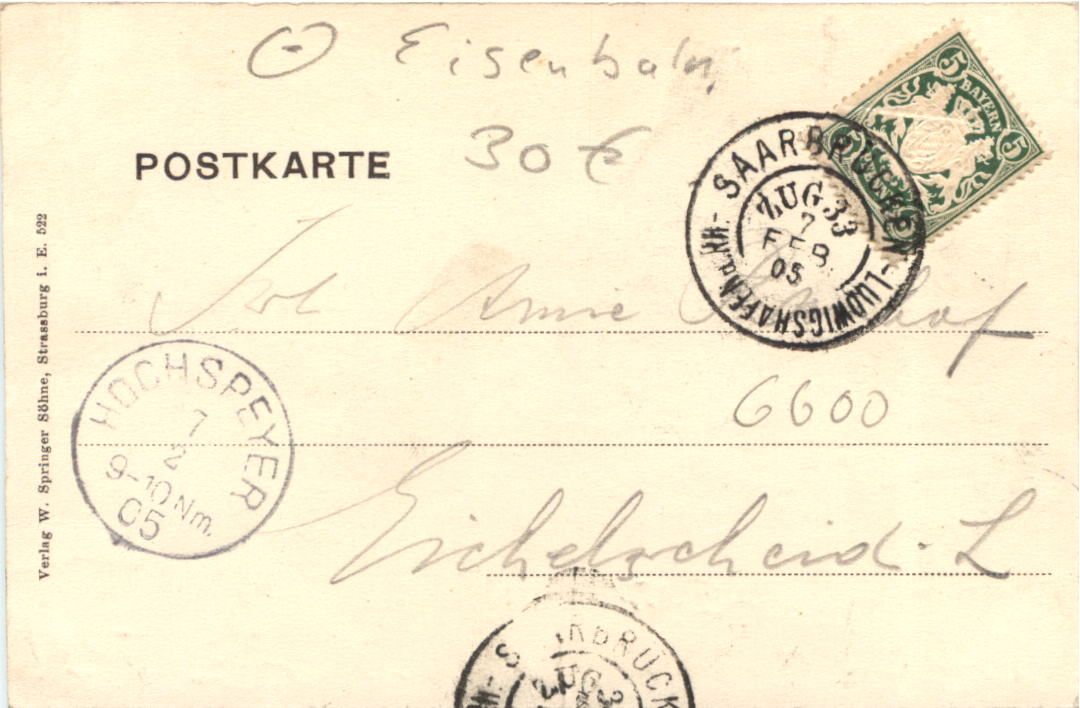 Eisenbahn
30 €
POSTKARTE
5 BAYERN 5
5
SAARBRÜCKEN-LUDWIGSHAFEN a.RH.-
ZUG 33
7
FEB
05
6600
HOCHSPEYER
7
2
9-10 Nm.
05
Eichelscheid. L
SAARBRÜCK
ZUG 3
RH.-
Verlag W. Springer Söhne, Strassburg i. E. 522